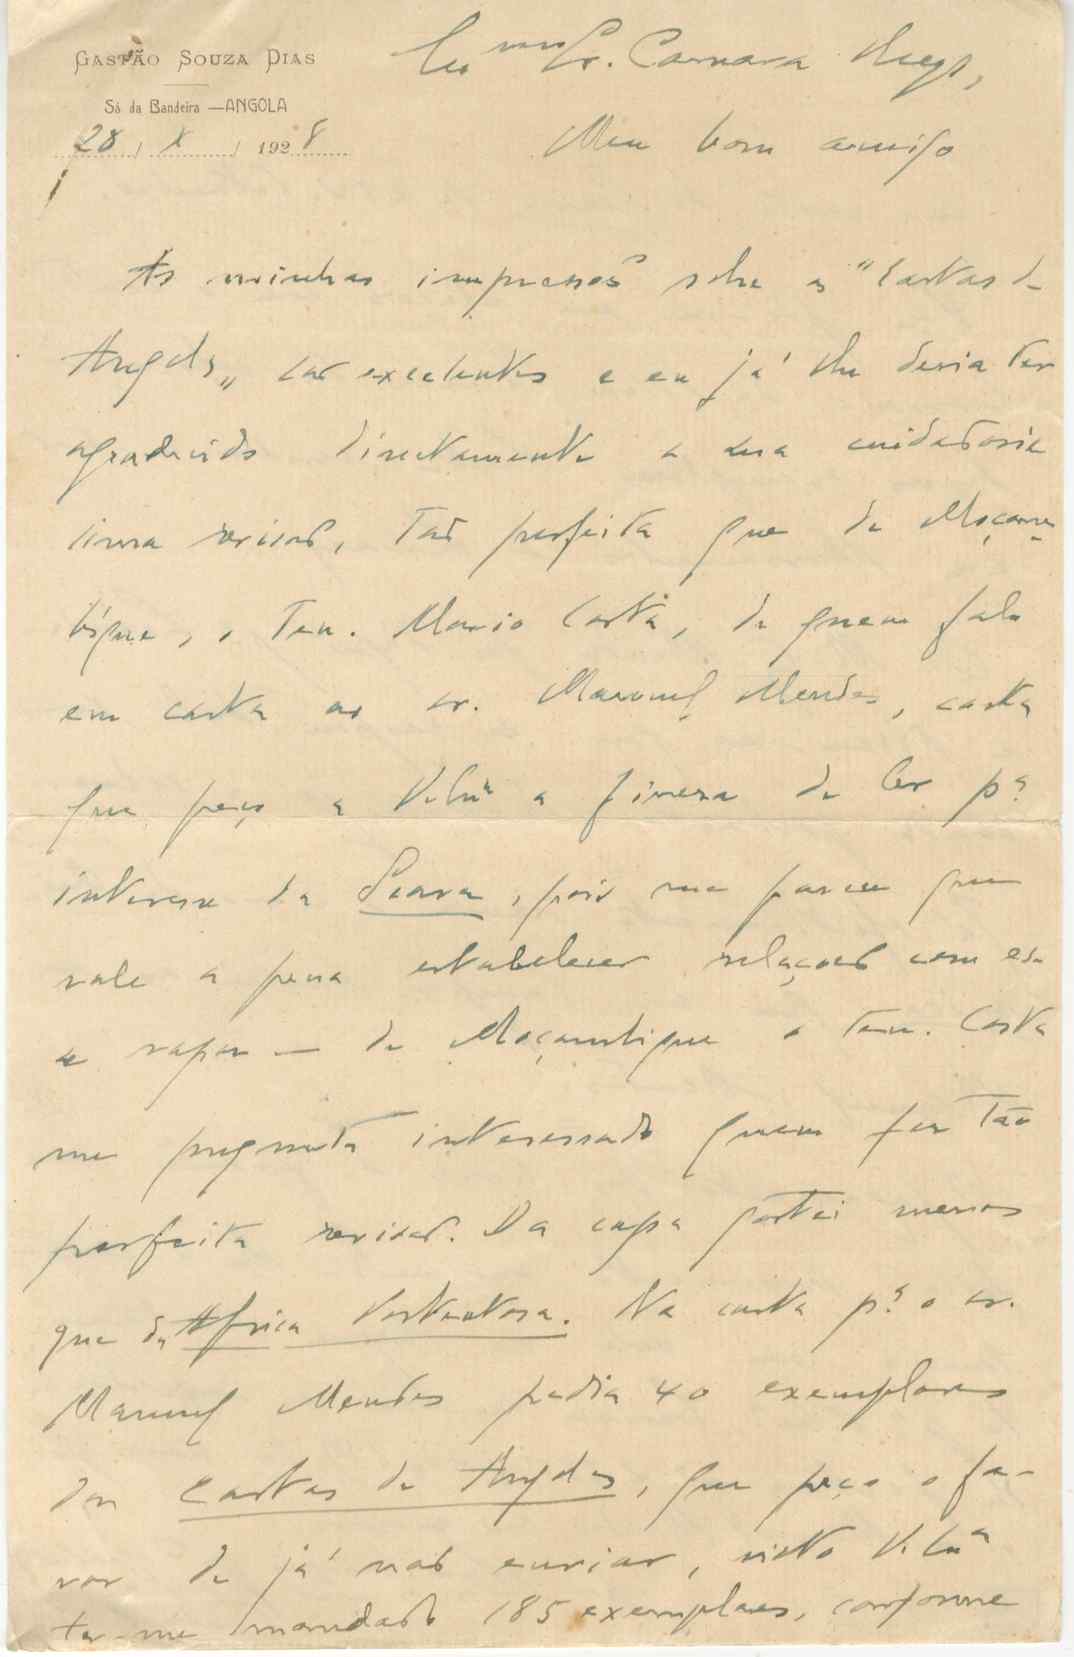 GASTÃO SOUZA DIAS
Sá da Bandeira — ANGOLA
28 / X / 1928
Exmo Sr. Camara Reys,
Meu bom amigo
As minhas impressões sobre as "Cartas de
Angola" são excelentes e eu já lhe devia ter
agradecido directamente a sua cuidadosis
sima revisão, tão perfeita que de Moçam
bique, o Ten. Mario Costa, de quem falo
em carta ao sr. Manuel Mendes, carta
que peço a V. Exa a fineza de ler pa
interesse da Seara, pois me parece que
vale a pena estabelecer relações com es-
se rapaz — de Moçambique o Ten. Costa
me pregunta interessado quem fez tão
perfeita revisão. Da capa gostei menos
que da Africa Portentosa. Na carta pa o sr.
Manuel Mendes pedia 40 exemplares
das Cartas de Angola, que peço o fa-
vor de já não enviar, visto V. Exa
ter-me mandado 185 exemplares, conforme